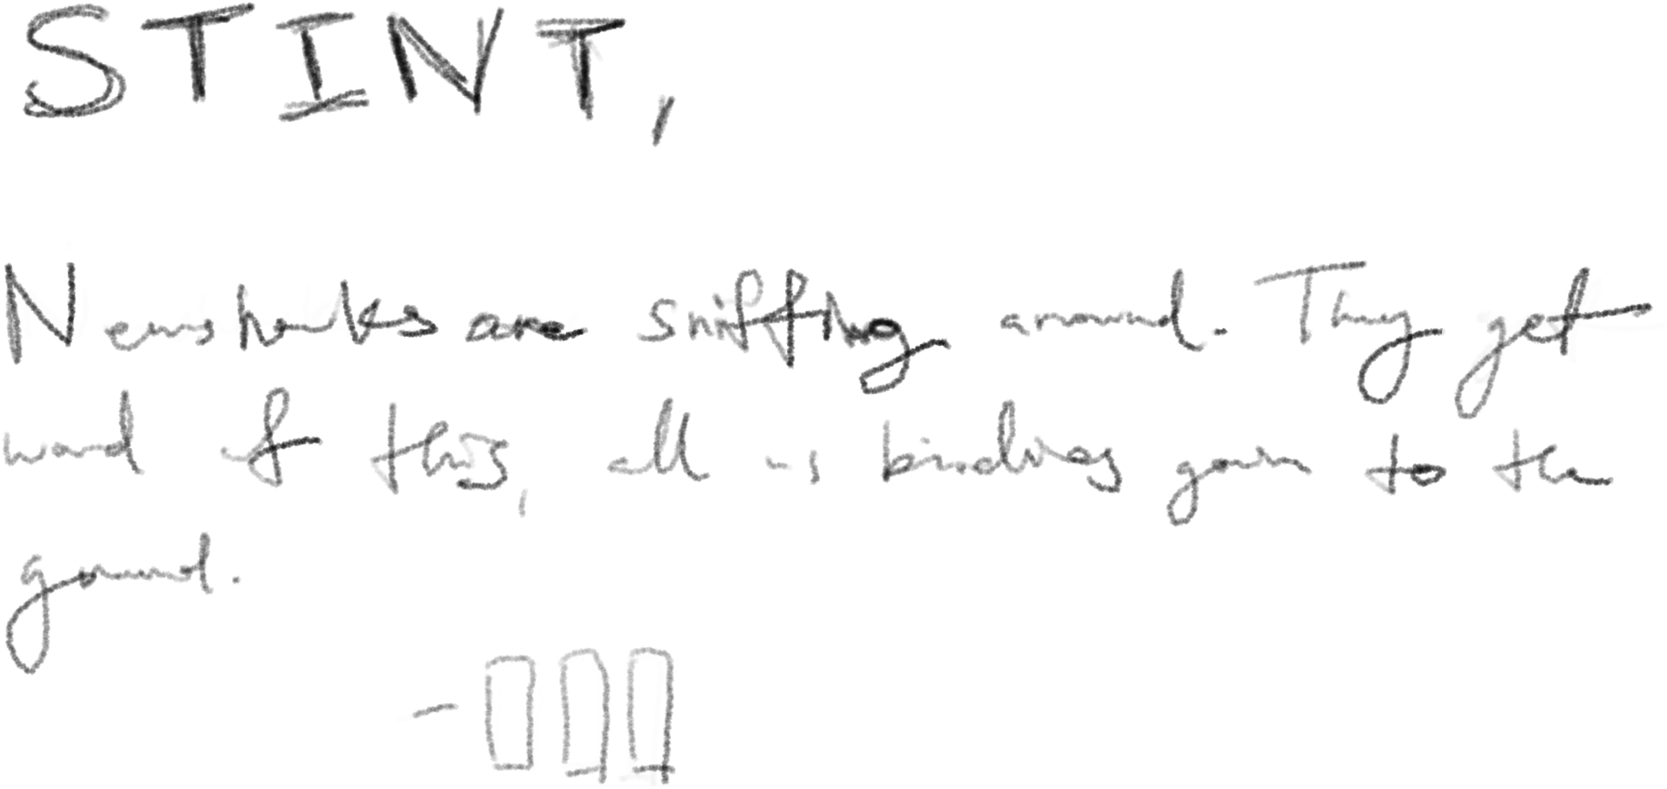 STINT,
Newshawks are sniffing around. They get
word of this, all us birdies goin to the
ground.